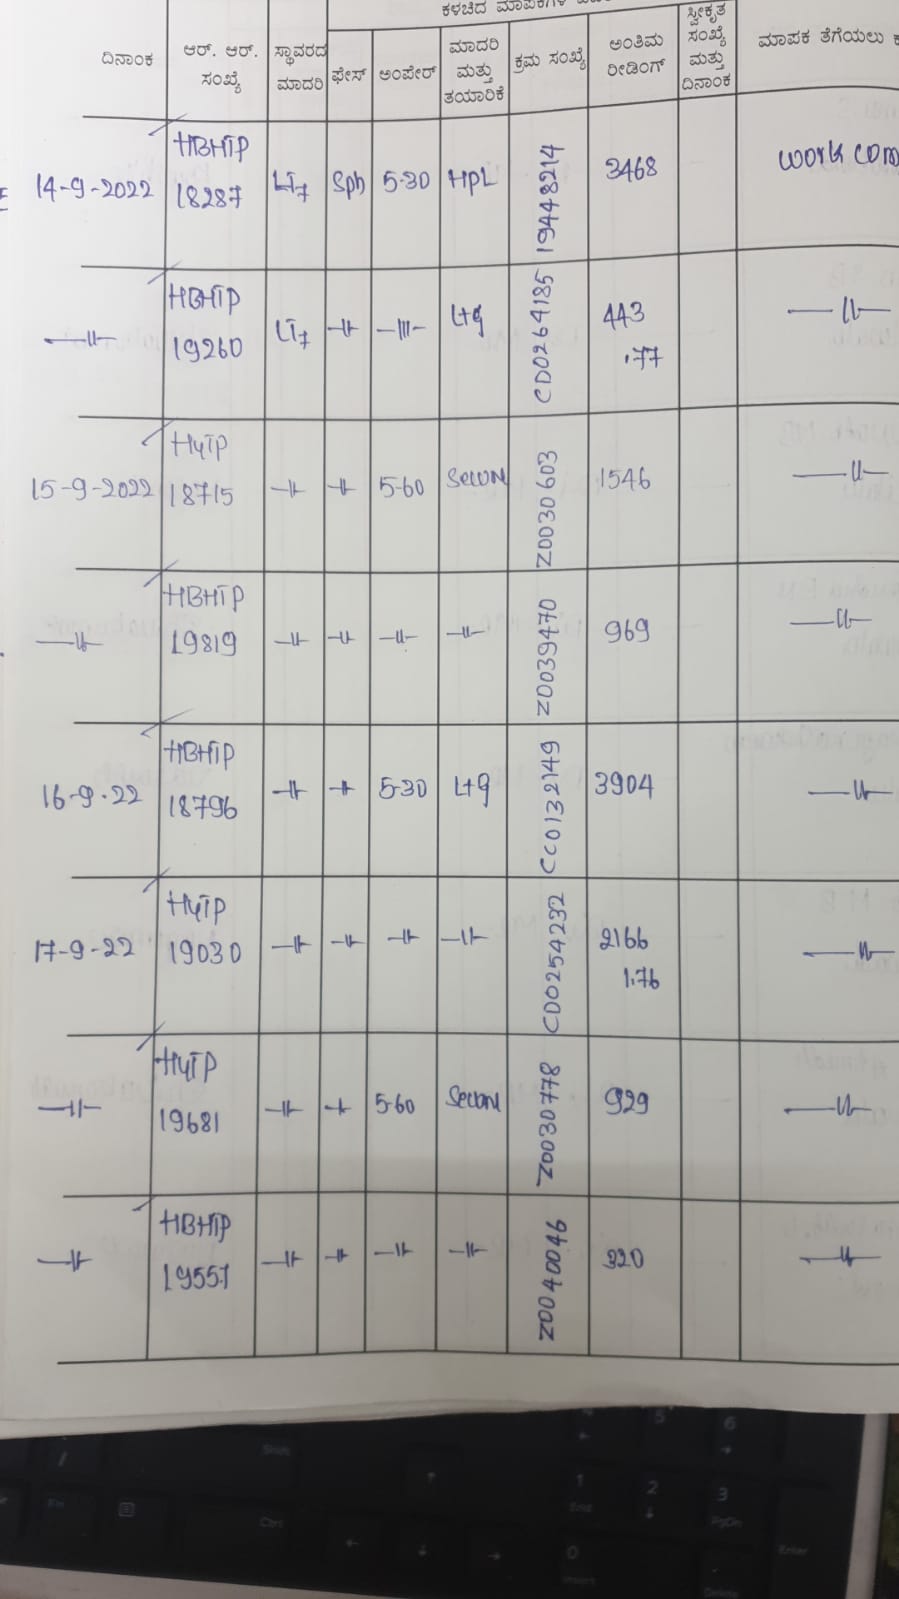 ದಿನಾಂಕ ಆರ್. ಆರ್. ಸಂಖ್ಯೆ ಸ್ಥಾವರದ ಮಾದರಿ ಫೇಸ್ ಅಂಪೇರ್ ಮಾದರಿ ಮತ್ತು ತಯಾರಿಕೆ ಕ್ರಮ ಸಂಖ್ಯೆ ಅಂತಿಮ ರೀಡಿಂಗ್ ಸ್ವೀಕೃತ ಸಂಖ್ಯೆ ಮತ್ತು ದಿನಾಂಕ ಮಾಪಕ ತೆಗೆಯಲು
14-9-2022 HBHTP 18287 LT7 Sph 5-30 HPL 19448214 3468 work com
—〃— HBHTP 19260 LT7 —〃— —〃— L+g CD0264185 443 .77 —〃—
15-9-2022 HyTP 18715 —〃— —〃— 5-60 Secure Z0030603 1546 —〃—
—〃— HBHTP 19819 —〃— —〃— —〃— —〃— Z0039470 969 —〃—
16-9-22 HBHTP 18796 —〃— —〃— 5-30 L+g CC0132149 3904 —〃—
17-9-22 HyTP 19030 —〃— —〃— —〃— —〃— CD0254232 2166 1.76 —〃—
—〃— HyTP 19681 —〃— —〃— 5-60 Secure Z0030778 929 —〃—
—〃— HBHTP 19557 —〃— —〃— —〃— —〃— Z0040046 320 —〃—